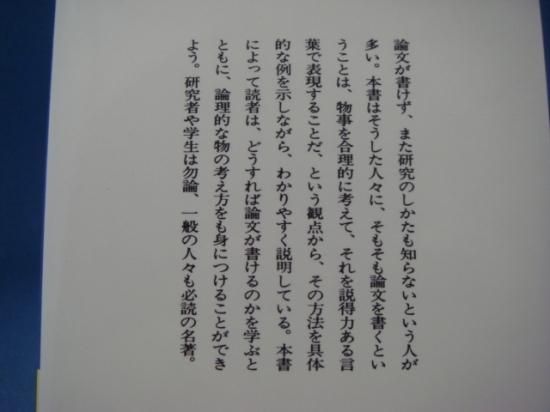 論文が書けず、また研究のしかたも知らないという人が
多い。本書はそうした人々に、そもそも論文を書くとい
うことは、物事を合理的に考えて、それを説得力ある言
葉で表現することだ、という観点から、その方法を具体
的な例を示しながら、わかりやすく説明している。本書
によって読者は、どうすれば論文が書けるのかを学ぶと
ともに、論理的な物の考え方をも身につけることができ
よう。研究者や学生は勿論、一般の人々も必読の名著。